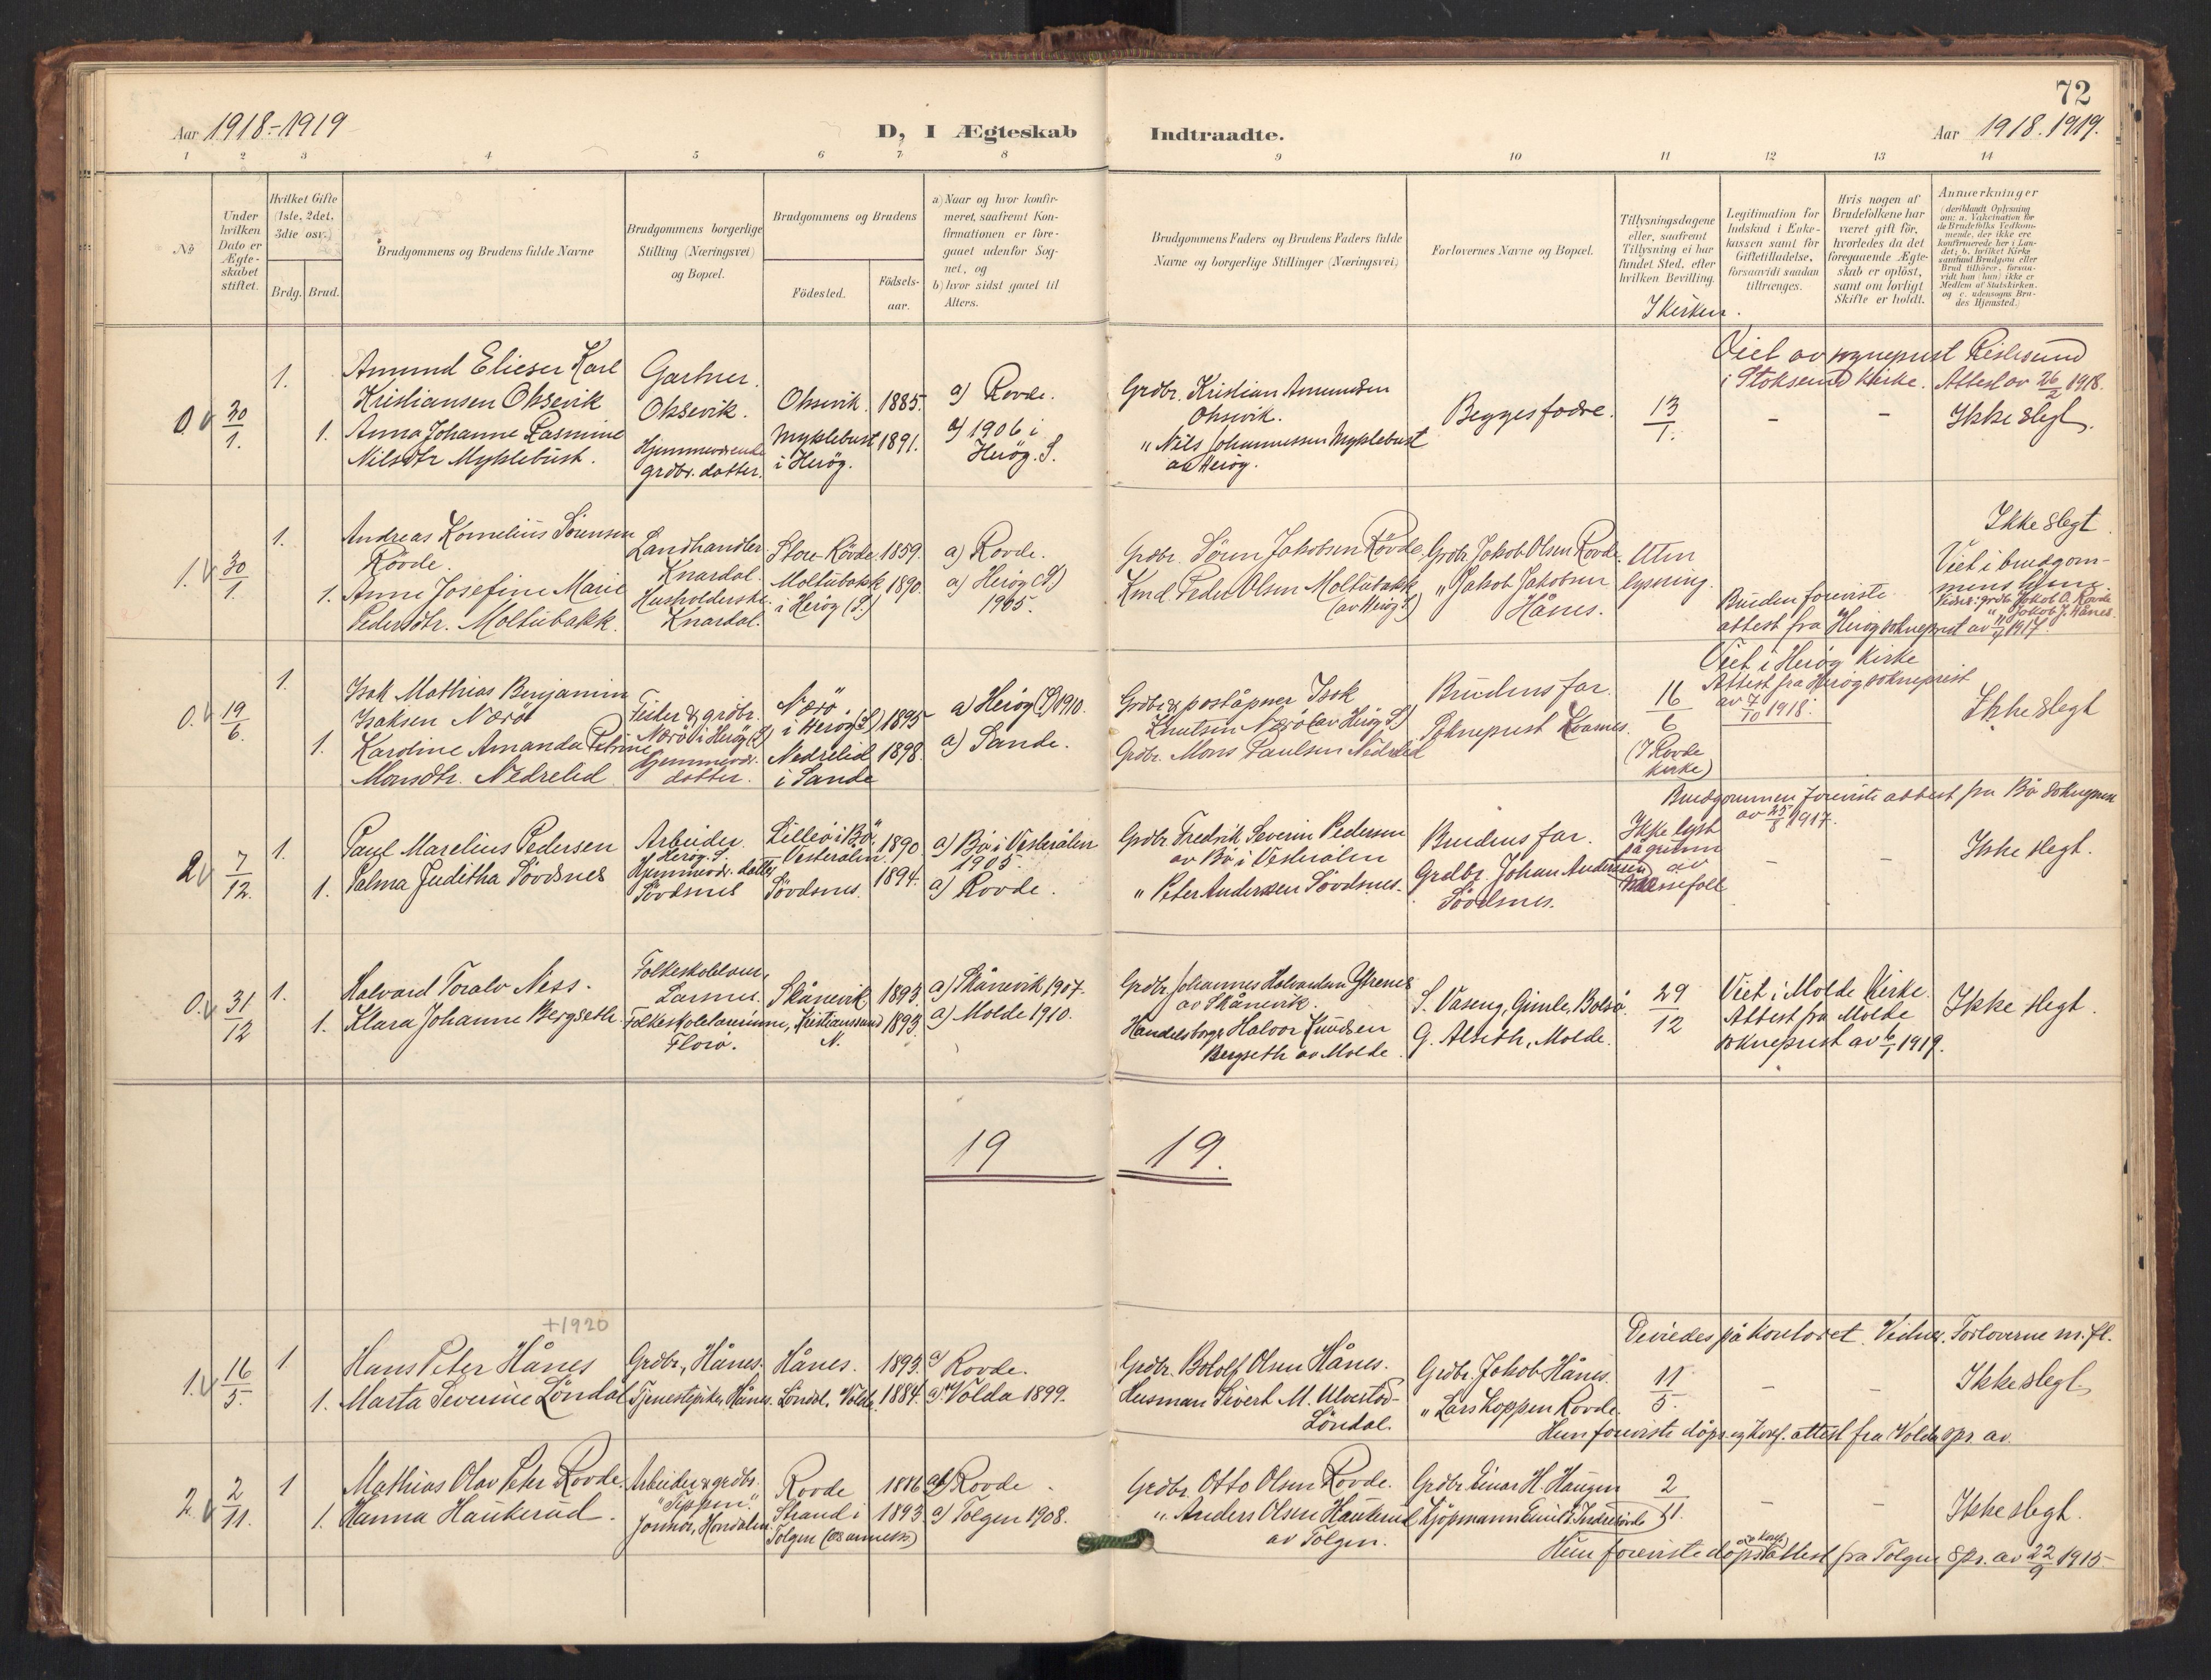 72
Aar 1918-1919
D, I Ægteskab
Indtraadte.
Aar 1918.1919.
1 2 3 4 5 6 7 8 9 10 11 12 13 14
№
Under hvilken Dato er Ægteskabet stiftet.
Hvilket Gifte (1ste, 2det, 3die osv.)
Brdg. Brud.
Brudgommens og Brudens fulde Navne
Brudgommens borgerlige Stilling (Næringsvei) og Bopæl.
Brudgommens og Brudens
Fødested. Fødselsaar.
a) Naar og hvor konfirmeret, saafremt Konfirmationen er foregaaet udenfor Sognet, og
b) hvor sidst gaaet til Alters.
Brudgommens Faders og Brudens Faders fulde Navne og borgerlige Stillinger (Næringsvei)
Forlovernes Navne og Bopæl.
Tillysningsdagene eller, saafremt Tillysning ei har fundet Sted, efter hvilken Bevilling.
I kirken.
Legitimation for Indskud i Enkekassen samt for Giftetilladelse, forsaavidt saadan tiltrænges.
Hvis nogen af Brudefolkene har været gift før, hvorledes da det foregaaende Ægteskab er opløst, samt om lovligt Skifte er holdt.
Anmerkninger (deriblandt Oplysning om: a. Vakcination for de Brudefolks Vedkommende, der ikke ere konfirmerede her i Landet; b. hvilket Kirkesamfund Brudgom eller Brud tilhører, forsaavidt han (hun) ikke er Medlem af Statskirken. og c. udensogns Brudes Hjemsted.)
0. 30/1. 1.
Amund Elieser Karl
Kristiansen Oksevik
1. Anna Johanne Rasmine
Nilsdtr Myklebust.
Gartner.
Oksevik.
Hjemmeværende
grdbr. datter.
Oksevik. 1885.
Myklebust 1891.
i Herøy.
a) Rovde.
a) 1906 i
Herøy. S.
Grdbr. Kristian Amundsen
Oksevik.
" Nils Johannessen Myklebust
av Herøy.
Begges fædre.
13/1.
Viet av sogneprest
i Stoksund kirke. Attest av 26/2 1918.
Ikke slegt.
1. 30/1. 1.
Andreas Kornelius Sørensen
Røvde.
1. Anne Josefine Marie
Pedersdtr. Moltubakk.
Landhandler.
Knardal.
Husholderske.
Knardal.
Stor-Røvde 1859.
Moltubakk 1890.
i Herøy (S.)
a) Rovde.
a) Herøy (S.)
1905.
Grdbr. Søren Jakobsen Røvde.
Kmd. Peder Olsen Moltubakk
(av Herøy S.)
Grdbr. Jakob Olsen Rovde.
" Jakob Jakobsen
Hånes.
Uten
lysning.
Bruden foreviste
attest fra Herøy sokneprest av 11/7 1917.
Ikke slegt.
Viet i brudgommens hjem.
Vidner: grdbr. Jakob O. Rovde
" Jakob J. Hånes.
0. 19/6. 1.
Isak Mathias Benjamin
Isaksen Nærø
1. Karoline Amanda Petrine
Monsdtr. Nedrelid
Fisker & grdbr.
Nærø i Herøy (S)
Hjemmevær.
datter.
Nærø
i Herøy (S) 1895
Nedrelid 1898.
i Sande
a) Herøy (S) 1910.
a) Sande.
Grdbr. & poståpner Isak
Knutsen Nærø (av Herøy S.)
Grdbr. Mons Paulsen Nedrelid
Brudens far.
Sokneprest Koames.
16/6
(I Rovde
kirke)
Viet i Herøy kirke
Attest fra Herøy sokneprest
av 7/10 1918.
Ikke slegt
2 7/12. 1.
Paul Marelius Pedersen
1. Salma Juditha Søvdsnes
Arbeider.
Herøy. S.
Hjemmevær. datter
Søvdsnes
Lillø i Bø. 1890
Vesterålen.
Søvdsnes. 1894.
a) Bø i Vesterålen
1905.
a) Rovde.
Grdbr. Fredrik Severin Pedersen
av Bø i Vesterålen
" Peter Anderssen Søvdsnes.
Brudens far.
Grdbr. Johan Anderssen
Søvdsnes.
Ikke lyst
på grunn
av
messefall
Brudgommen foreviste attest fra Bø sokneprest
av 25/8 1917.
Ikke slegt.
0. 31/12 1.
Halvard Toralv Ness.
1. Klara Johanne Bergseth.
Folkeskolelærer,
Larsnes.
Folkeskolelærerinne,
Florø.
Skånevik 1893.
Kristianssund 1893.
N.
a) Skånevik 1907.
a) Molde 1910.
Grdbr. Johannes Halvardsen Ytrenes
av Skånevik.
Handelsborger Halvor Knudsen
Bergseth av Molde.
S. Vaseng, Gimle, Bolsø.
G. Alseth, Molde.
29/12
Viet i Molde Kirke.
Attest fra Molde
sokneprest av 6/1 1919.
Ikke slegt.
19 19.
+1920
1. 16/5. 1
Hans Peter Hånes
1. Marta Severine Løndal
Grdbr., Hånes.
Tjenestepike, Hånes.
Hånes. 1893.
Løndal, Volda. 1884.
a) Rovde.
a) Volda 1899.
Grdbr. Botolf Olsen Hånes.
Husmann Sivert M. Ulvestad-
Løndal.
Grdbr. Jakob Hånes.
" Lars Koppen Rovde.
11/5.
De viedes på kontoret. Vidner. Forloverne m.fl.
Ikke slegt
Hun foreviste dåps- og konf. attest fra Volda spr. av.
2. 2/11. 1
Mathias Olav Peter Rovde.
1. Hanna Haukerud.
Arbeider & grdbr.
"Tippen".
Rovde 1886
Strand i 1893
Tolgen
a) Rovde.
a) Tolgen 1908.
Grdbr. Otto Olsen Rovde.
" Anders Olsen Haukerud
av Tolgen.
Grdbr. Einar H. Haugen
Kjøpmann Emil P. Indrerovde
2/11.
Ikke slegt.
Hun foreviste dåps- og konf. attest fra Tolgen Spr. av 22/9 1915